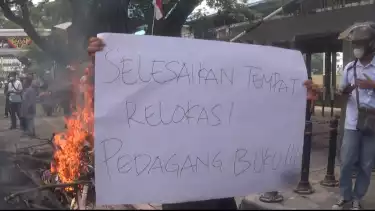 SELESAIKAN TEMPAT
RELOKASI
PEDAGANG